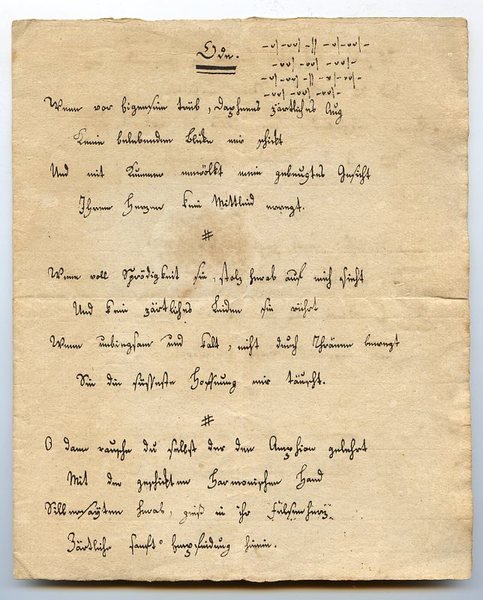 Ode.
– ᴗ| – ᴗᴗ| – || – ᴗ| – ᴗᴗ| –
– ᴗᴗ| – ᴗᴗ| – ᴗᴗ| –
– ᴗ| – ᴗᴗ| – || – ᴗ| – ᴗᴗ| –
– ᴗᴗ| – ᴗᴗ| – ᴗᴗ| –
Wenn vor Eigensinn trüb, Daphnens zärtliches Aug
Keine belebenden Blike mir schikt
Und mit Kummer umwölkt mein gebeugtes Gesicht
Ihrem Herzen kein Mittleid erregt.
#
Wenn voll Sprödigkeit sie, stolz herab auf mich sieht
Und kein zärtliches Leiden sie rührt
Wenn unbiegsam und kalt, nicht durch Thränen bewegt
Sie die süsseste Hoffnung mir täuscht.
#
O dann rausche du selbst der den Amphion gelehrt
Mit der geschikten Harmonischen Hand
Silbersayten herab, gieß in ihr Felsenherz
Zärtliche sanfte Empfindung hinein.